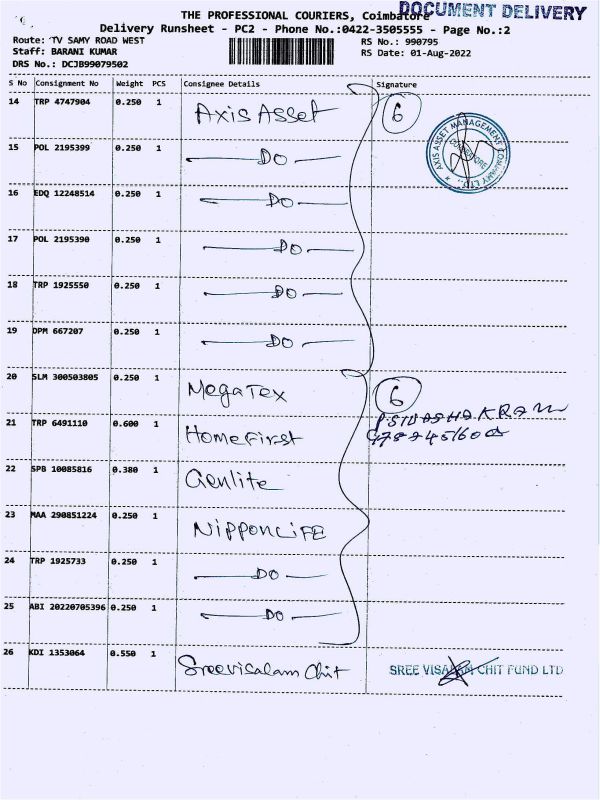 THE PROFESSIONAL COURIERS, Coimbatore
DOCUMENT DELIVERY
Delivery Runsheet - PC2 - Phone No.:0422-3505555 - Page No.:2
Route: TV SAMY ROAD WEST
RS No.: 990795
Staff: BARANI KUMAR
RS Date: 01-Aug-2022
DRS No.: DCJB99079502
S No Consignment No Weight PCS Consignee Details Signature
14 TRP 4747904 0.250 1 Axis Asset 6
AXIS ASSET MANAGEMENT COMPANY LTD. COIMBATORE
15 POL 2195399 0.250 1 DO
16 EDQ 12248514 0.250 1 DO
17 POL 2195390 0.250 1 DO
18 TRP 1925550 0.250 1 DO
19 DPM 667207 0.250 1 DO
20 SLM 300503805 0.250 1 MegaTex 6
21 TRP 6491110 0.600 1 HomeFirst
22 SPB 10085816 0.380 1 Genlite
23 MAA 290851224 0.250 1 NipponLiFE
24 TRP 1925733 0.250 1 DO
25 ABI 20220705396 0.250 1 DO
26 KDI 1353064 0.550 1 Sreevisalam Chit SREE VISALAM CHIT FUND LTD